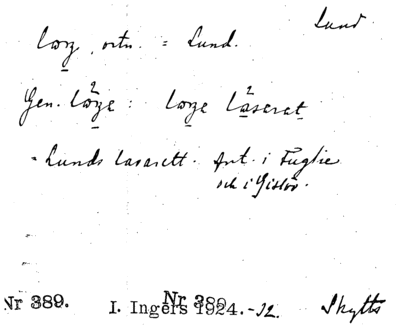 Lund
long, ortn. = Lund.
Gen. loŋe : loŋe laserat
= Lunds lasarett. Ant. i Fuglie
och i Gislöv.
Nr 389. I. Ingers 1924.-32. Skytts
Nr 389